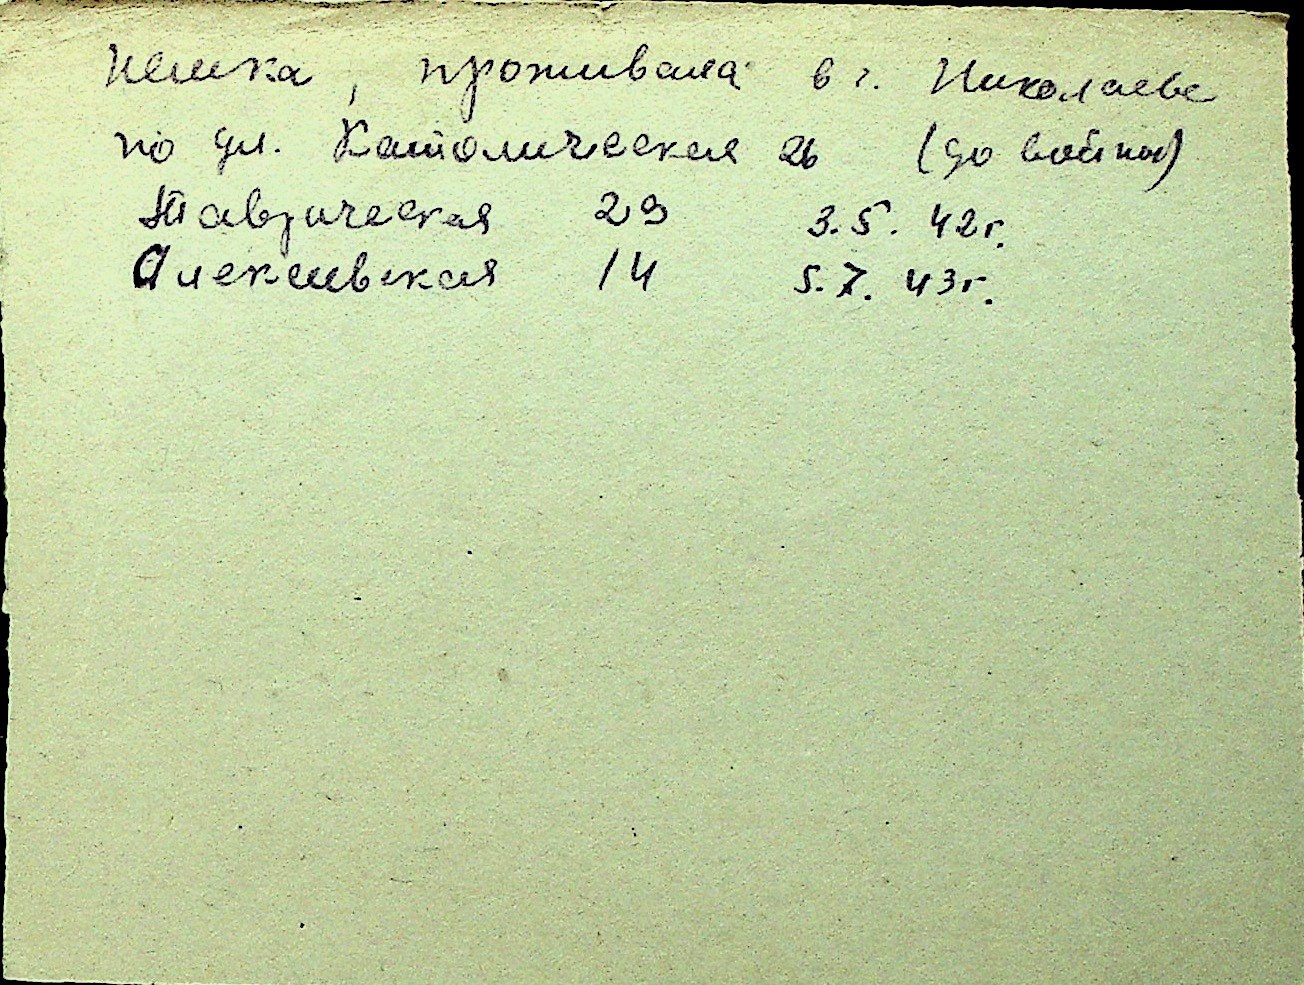 немка, проживала в г. Николаеве
по ул. Католическая 26 (до войны)
Таврическая 29 3.5. 42г.
Алексеевская 14 5.7. 43г.